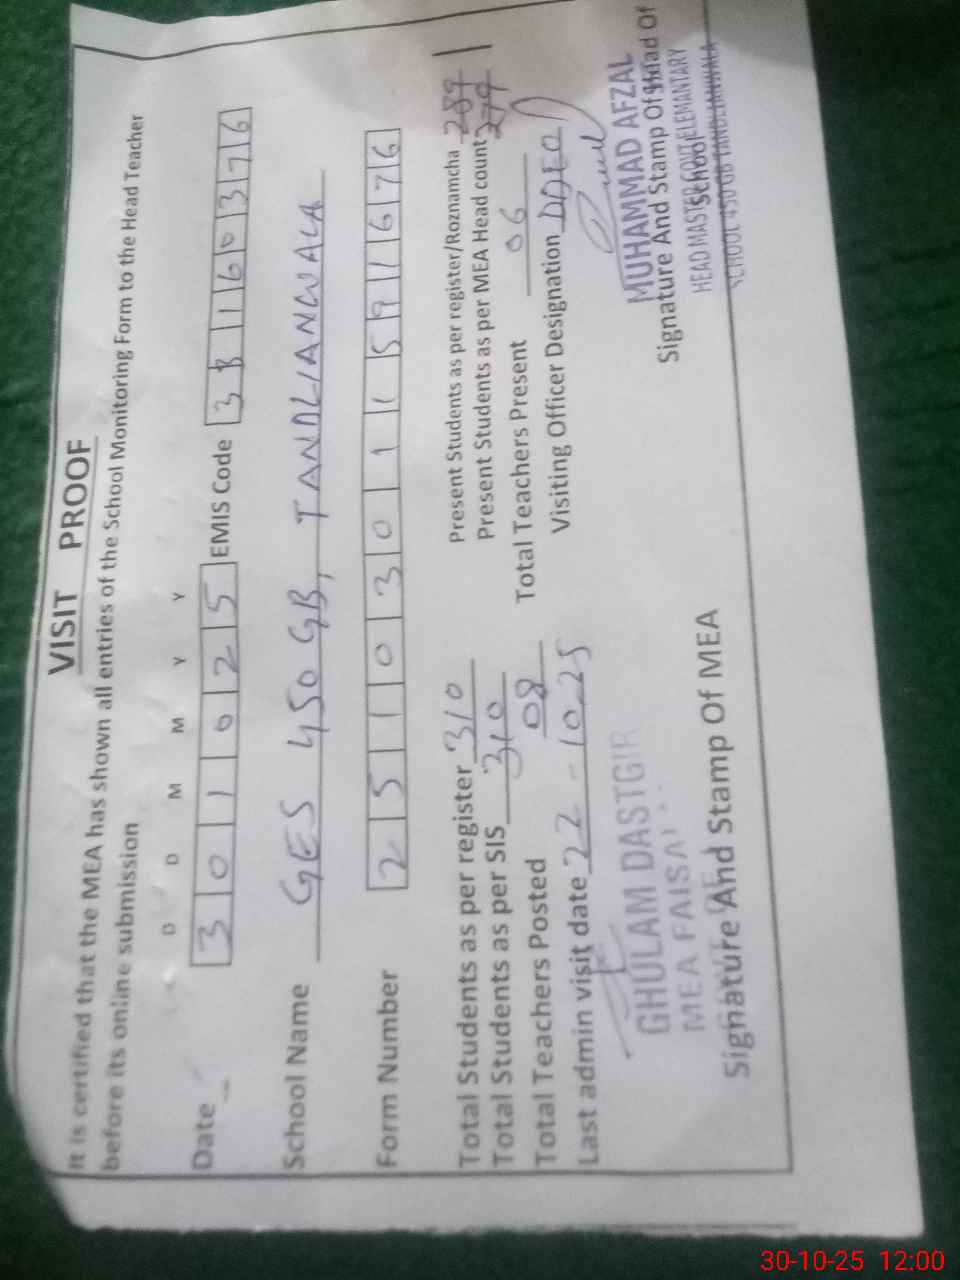 VISIT PROOF
It is certified that the MEA has shown all entries of the School Monitoring Form to the Head Teacher
before its online submission
D D M M Y Y
Date 3 0 1 0 2 5 EMIS Code 3 3 1 6 0 3 7 6
School Name GES 450 GB, TANDLIANWALA
Form Number 2 5 1 0 3 0 1 1 5 9 1 6 7 6
Total Students as per register 310 Present Students as per register/Roznamcha 289
Total Students as per SIS 310 Present Students as per MEA Head count 279
Total Teachers Posted 08 Total Teachers Present 06
Last admin visit date 22-10-25 Visiting Officer Designation DDEO
GHULAM DASTGIR
MEA FAISA
Signature And Stamp Of MEA
MUHAMMAD AFZAL
Signature And Stamp Of Head Of
School
HEAD MASTER GOVT ELEMANTARY
SCHOOL 450 GB TANDLIANWALA
30-10-25 12:00